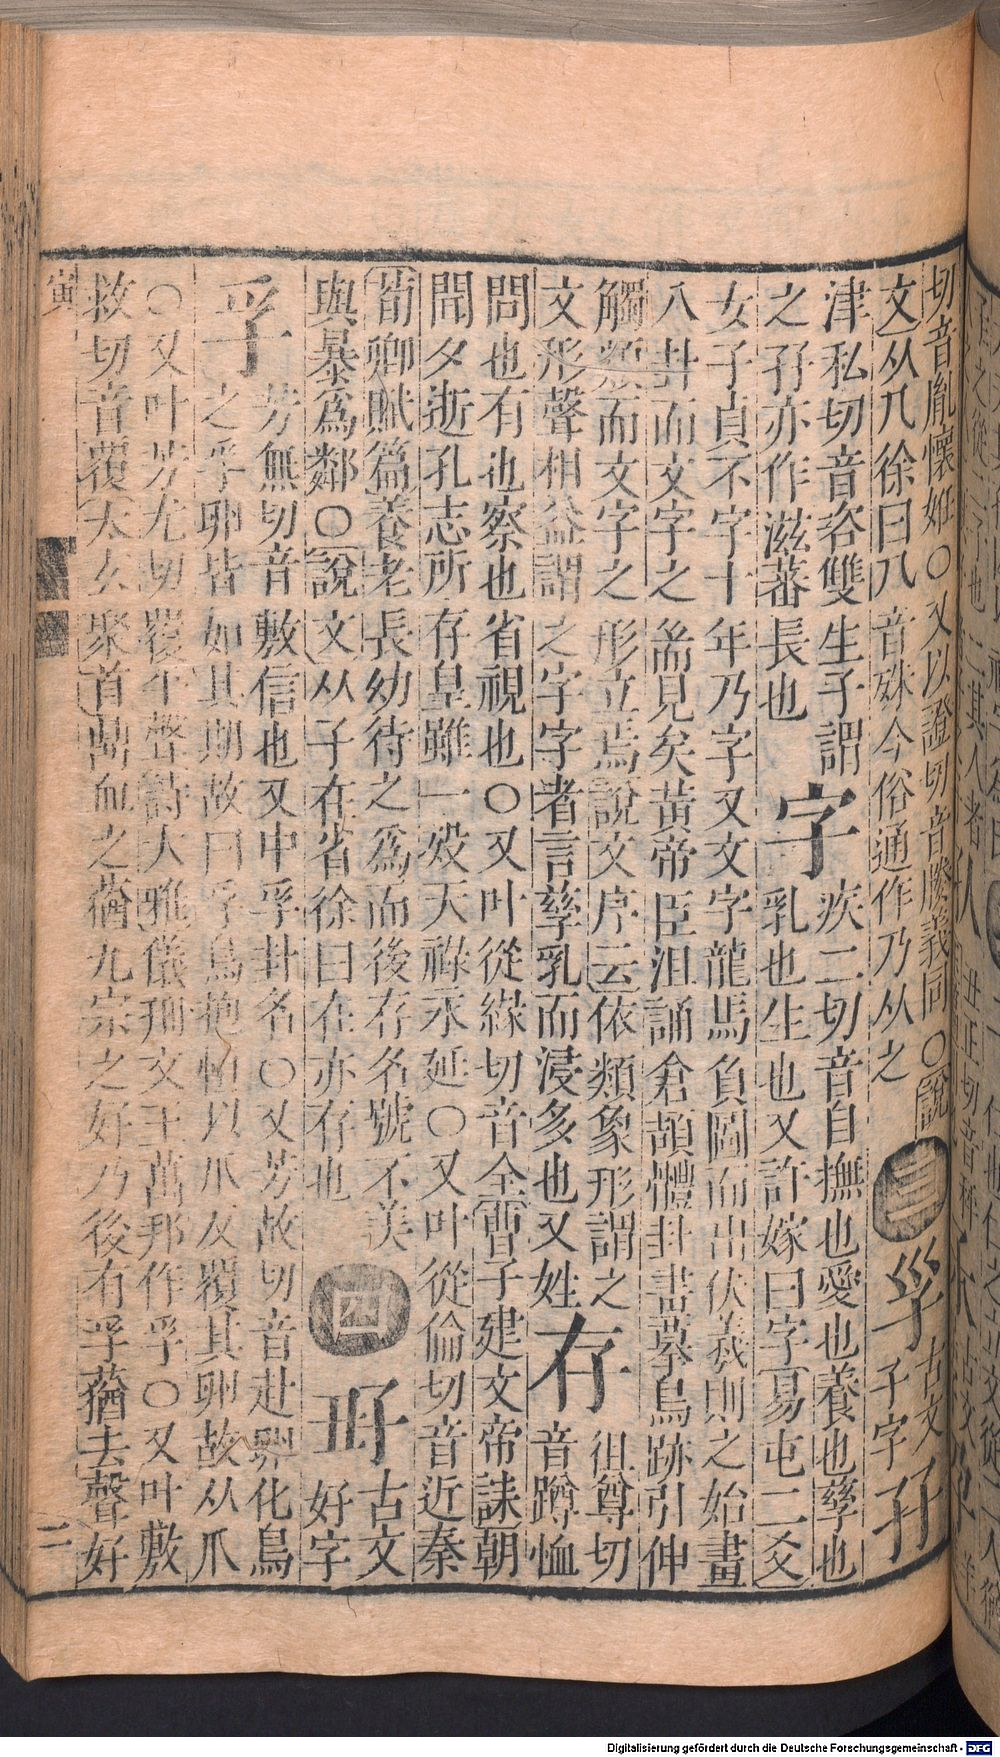 切音胤懷姙○又以證切音媵義同○說
文从几徐曰八音殊今俗通作乃从之 三 孚古文子字孖
津私切音咨雙生子謂
之孖亦作滋蕃長也 字 疾二切音自撫也愛也養也孳也
乳也生也又許嫁曰字易屯二爻
女子貞不字十年乃字又文字龍馬負圖而出伏羲則之始畫
八卦而文字之耑見矣黃帝臣沮誦倉頡體卦畫摹鳥跡引伸
觸類而文字之形立焉說文序云依類象形謂之
文形聲相益謂之字字者言孳乳而浸多也又姓 存 徂尊切
音蹲恤
問也有也察也省視也○又叶從緣切音全曹子建文帝誄朝
聞夕逝孔志所存皇雖一歿天祿永延○又叶從倫切音近秦
荀卿賦篇養老長幼待之爲而後存名號不美
與暴爲鄰○說文从子在省徐曰在亦存也 四 古文
好字
孚 芳無切音敷信也又中孚卦名○又芳故切音赴卵化鳥
之孚卵皆如其期故曰孚鳥抱恒以爪反覆其卵故从爪
○又叶芳尤切覆平聲詩大雅儀刑文王萬邦作孚○又叶敷
救切音覆太玄聚首鬭血之蕕九宗之好乃後有孚蕕去聲好
寅 二
Digitalisierung gefördert durch die Deutsche Forschungsgemeinschaft - DFG